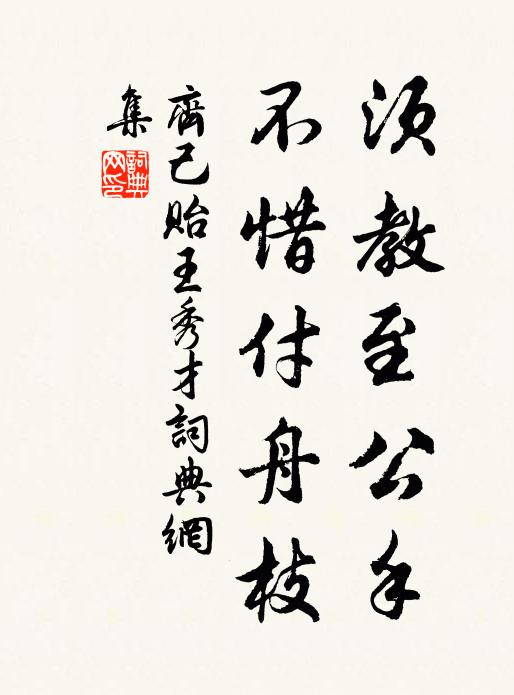 須教至公手
不惜付舟枝
齊己貽王秀才詞典網
集
詞典
网印